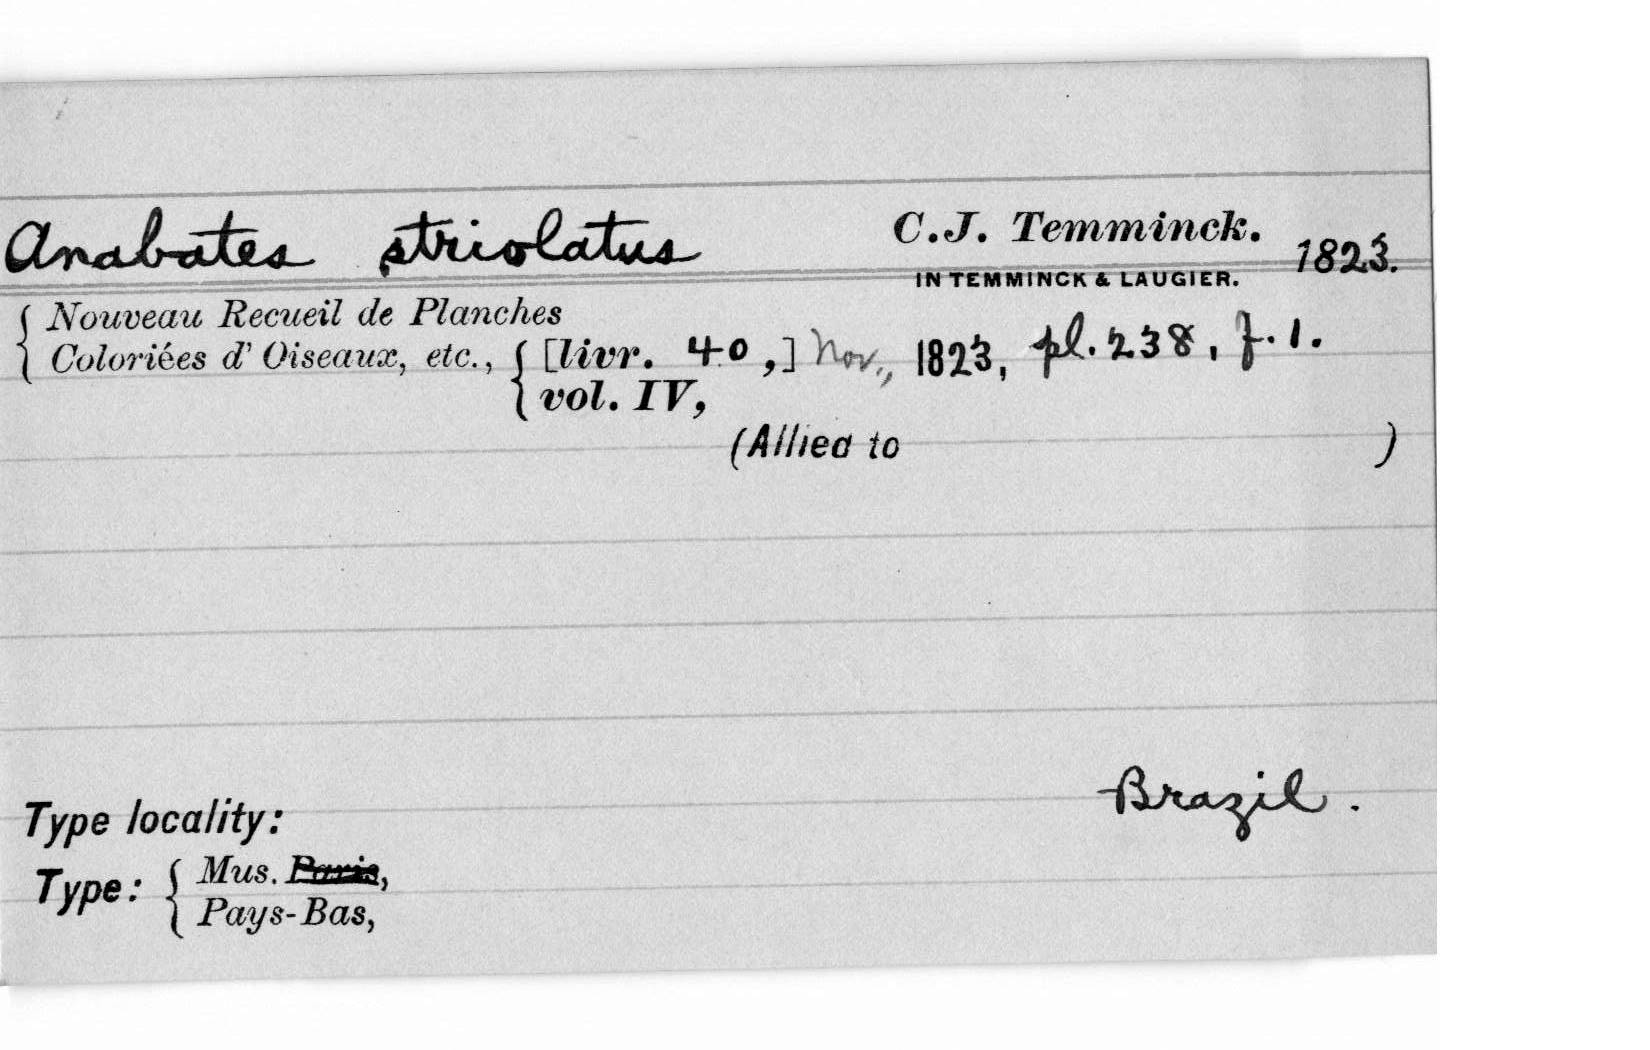 Anabates striolatus C.J. Temminck. 1823.
IN TEMMINCK & LAUGIER.
Nouveau Recueil de Planches
Coloriées d' Oiseaux, etc., [livr. 40,] Nov., 1823, pl. 238, f. 1.
vol. IV,
(Allied to )
Brazil.
Type locality:
Type: Mus. Paris,
Pays-Bas,